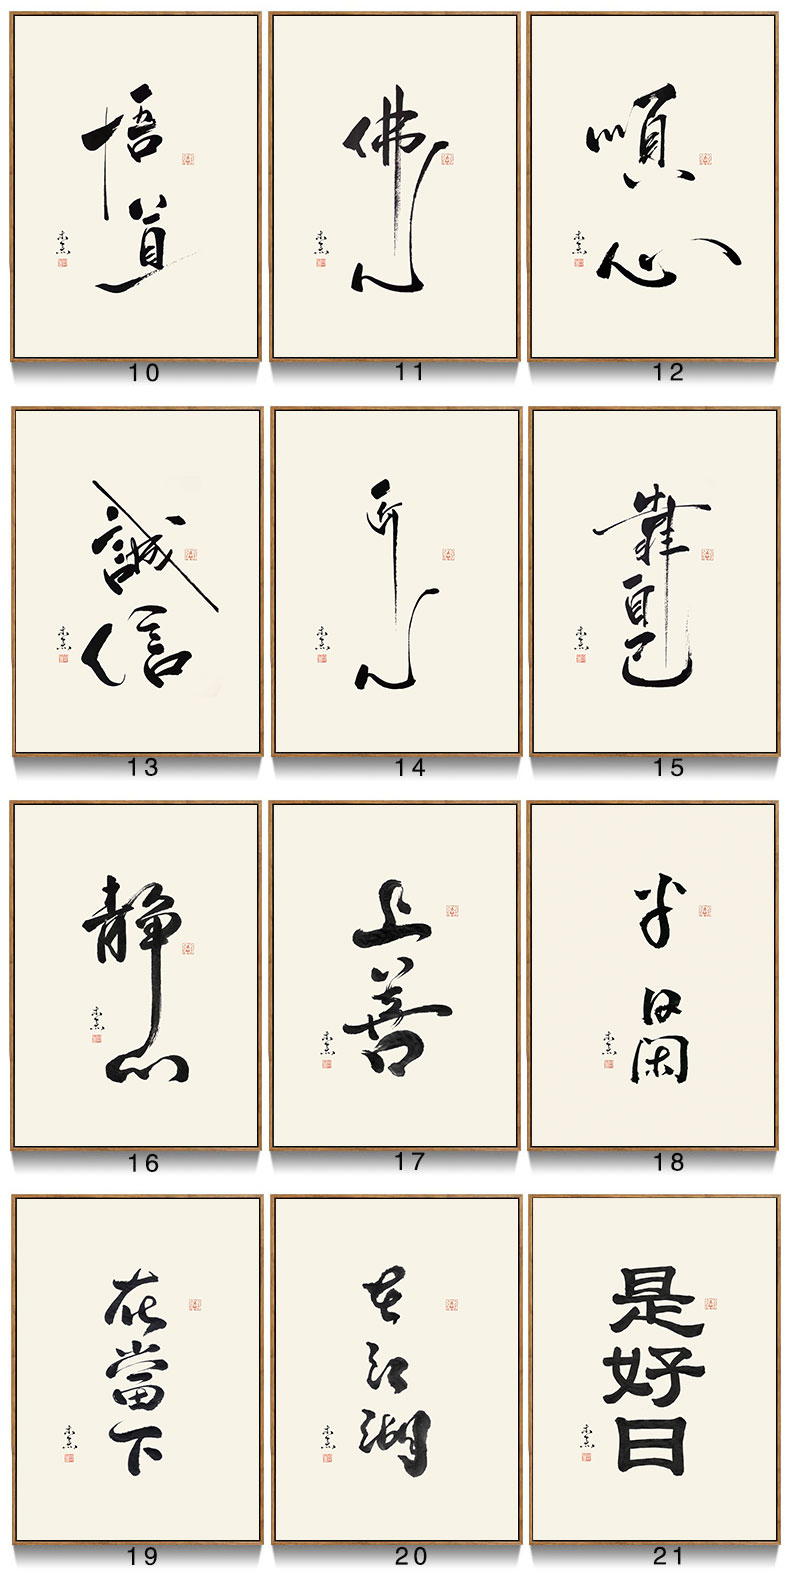 悟道
10
佛心
11
順心
12
誠信
13
匠心
14
靠自己
15
静心
16
上善
17
半日閑
18
在當下
19
在江湖
20
是好日
21